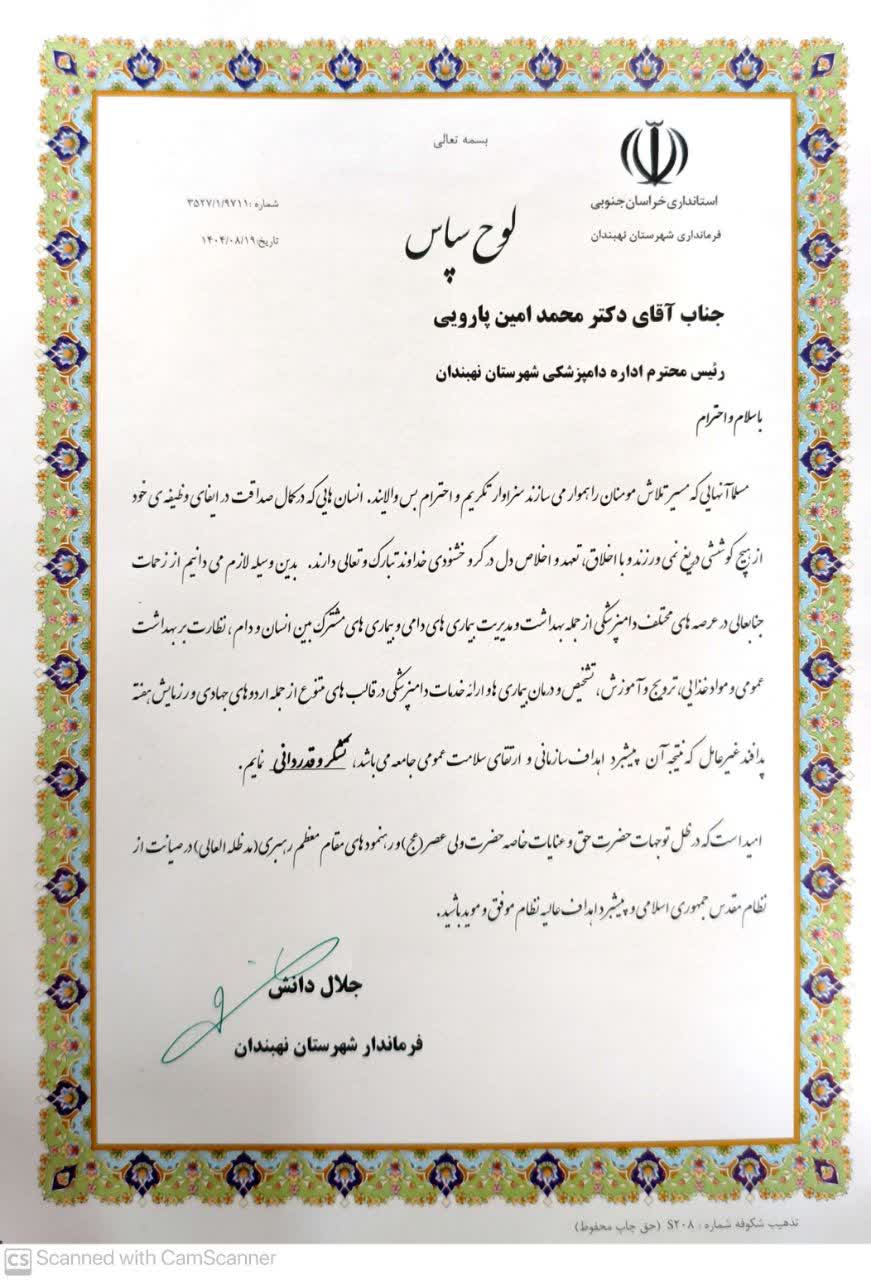 بسمه تعالی
استانداری خراسان جنوبی
فرمانداری شهرستان نهبندان
شماره :۳۵۲۷/۱/۹۷۱۱
تاریخ:۱۴۰۴/۰۸/۱۹
لوح سپاس
جناب آقای دکتر محمد امین پارویی
رئیس محترم اداره دامپزشکی شهرستان نهبندان
باسلام و احترام
مسلما آنهایی که مسیر تلاش مومنان را هموار می سازند سزاوار تکریم و احترام بس والایند. انسان هایی که در کمال صداقت در ایفای وظیفه ی خود
از هیچ کوششی دریغ نمی ورزند و با اخلاق، تعهد و اخلاص دل در گرو خشنودی خداوند تبارک و تعالی دارند. بدین وسیله لازم می دانیم از زحمات
جنابعالی در عرصه های مختلف دامپزشکی از جمله بهداشت و مدیریت بیماری های دامی و بیماری های مشترک بین انسان و دام ، نظارت بر بهداشت
عمومی و مواد غذایی، ترویج و آموزش، تشخیص و درمان بیماری ها و ارائه خدمات دامپزشکی در قالب های متنوع از جمله اردوهای جهادی و رزمایش هفته
پدافند غیرعامل که نتیجه آن پیشبرد اهداف سازمانی و ارتقای سلامت عمومی جامعه می باشد، تشکر و قدردانی نمایم .
امید است که در ظل توجهات حضرت حق و عنایات خاصه حضرت ولی عصر(عج)و رهنمودهای مقام معظم رهبری(مدظله العالی)در صیانت از
نظام مقدس جمهوری اسلامی و پیشبرد اهداف عالیه نظام موفق و موید باشید.
جلال دانش
فرماندار شهرستان نهبندان
تذهیب شکوفه شماره : S۲۰۸ (حق چاپ محفوظ)
CS Scanned with CamScanner